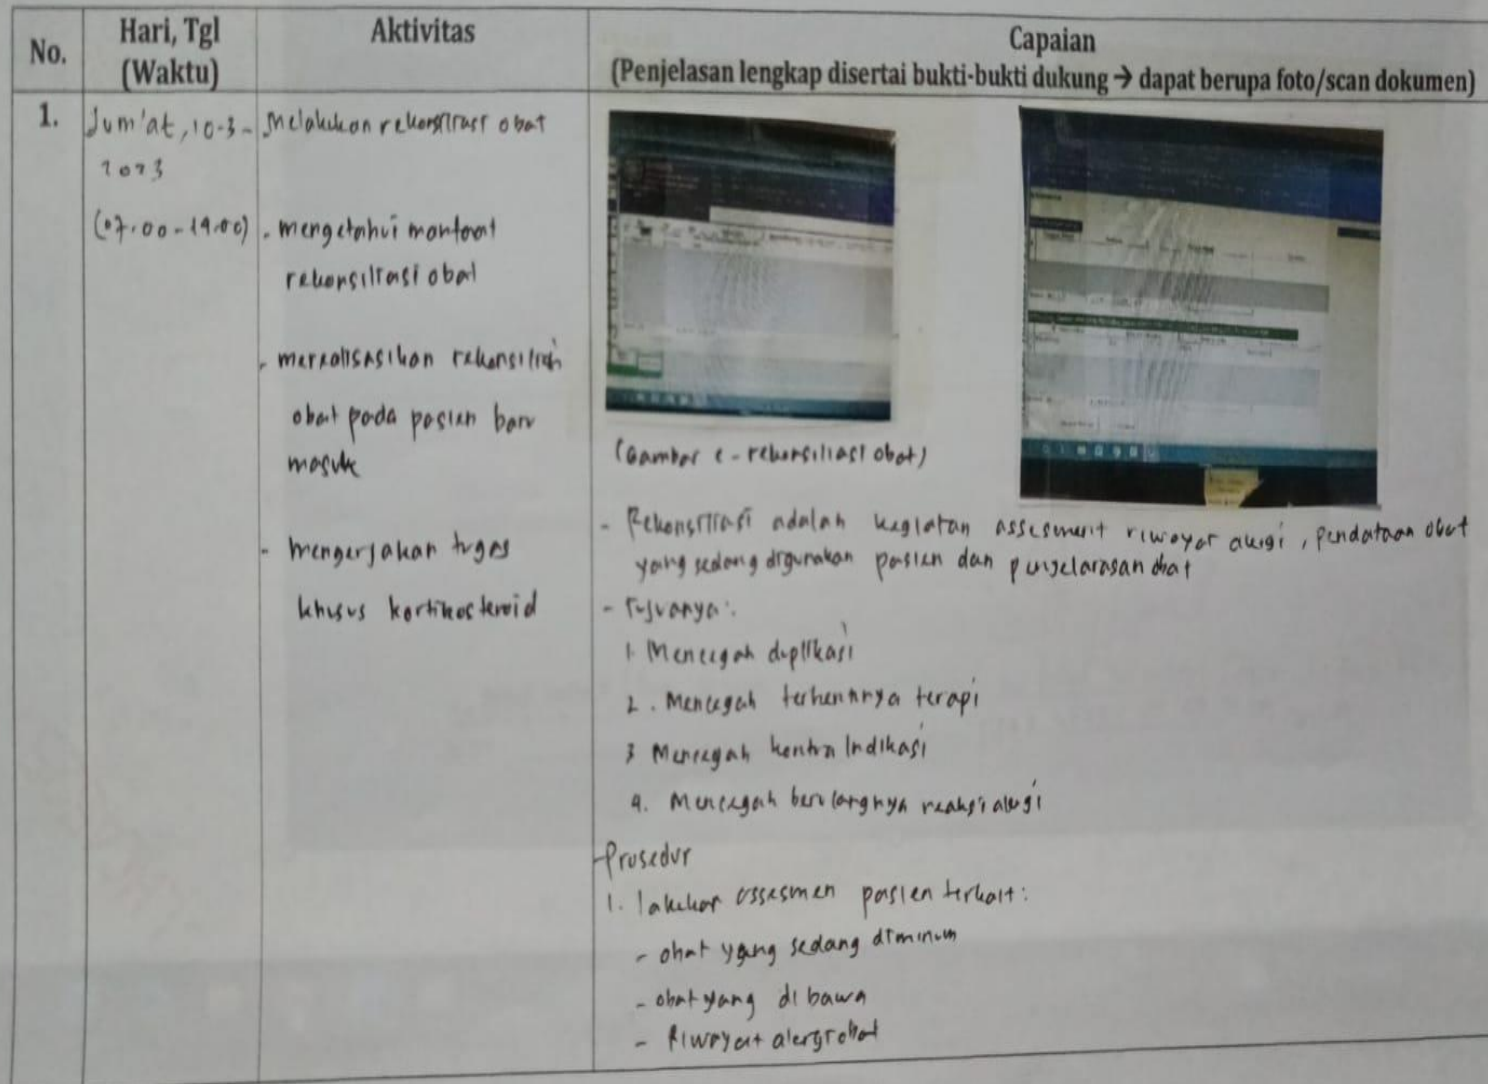 No.
Hari, Tgl
(Waktu)
Aktivitas
Capaian
(Penjelasan lengkap disertai bukti-bukti dukung → dapat berupa foto/scan dokumen)
1.
Jum'at, 10-3-
2023
(07.00-14.00)
- Melakukan rekonsiliasi obat
- mengetahui manfaat
rekonsiliasi obat
- merealisasikan rekonsiliasi
obat pada pasien baru
masuk
- mengerjakan tugas
khusus kortikosteroid
(Gambar e-rekonsiliasi obat)
- Rekonsiliasi adalah kegiatan assesment riwayat alergi, pendataan obat
yang sedang digunakan pasien dan penyelarasan obat
- Tujuanya:
1. Mencegah duplikasi
2. Mencegah terhentinya terapi
3 Mencegah kontra Indikasi
4. Mencegah berulangnya reaksi alergi
- Prosedur
1. lakukan assesmen pasien terkait:
- obat yang sedang diminum
- obat yang dibawa
- Riwayat alergi obat